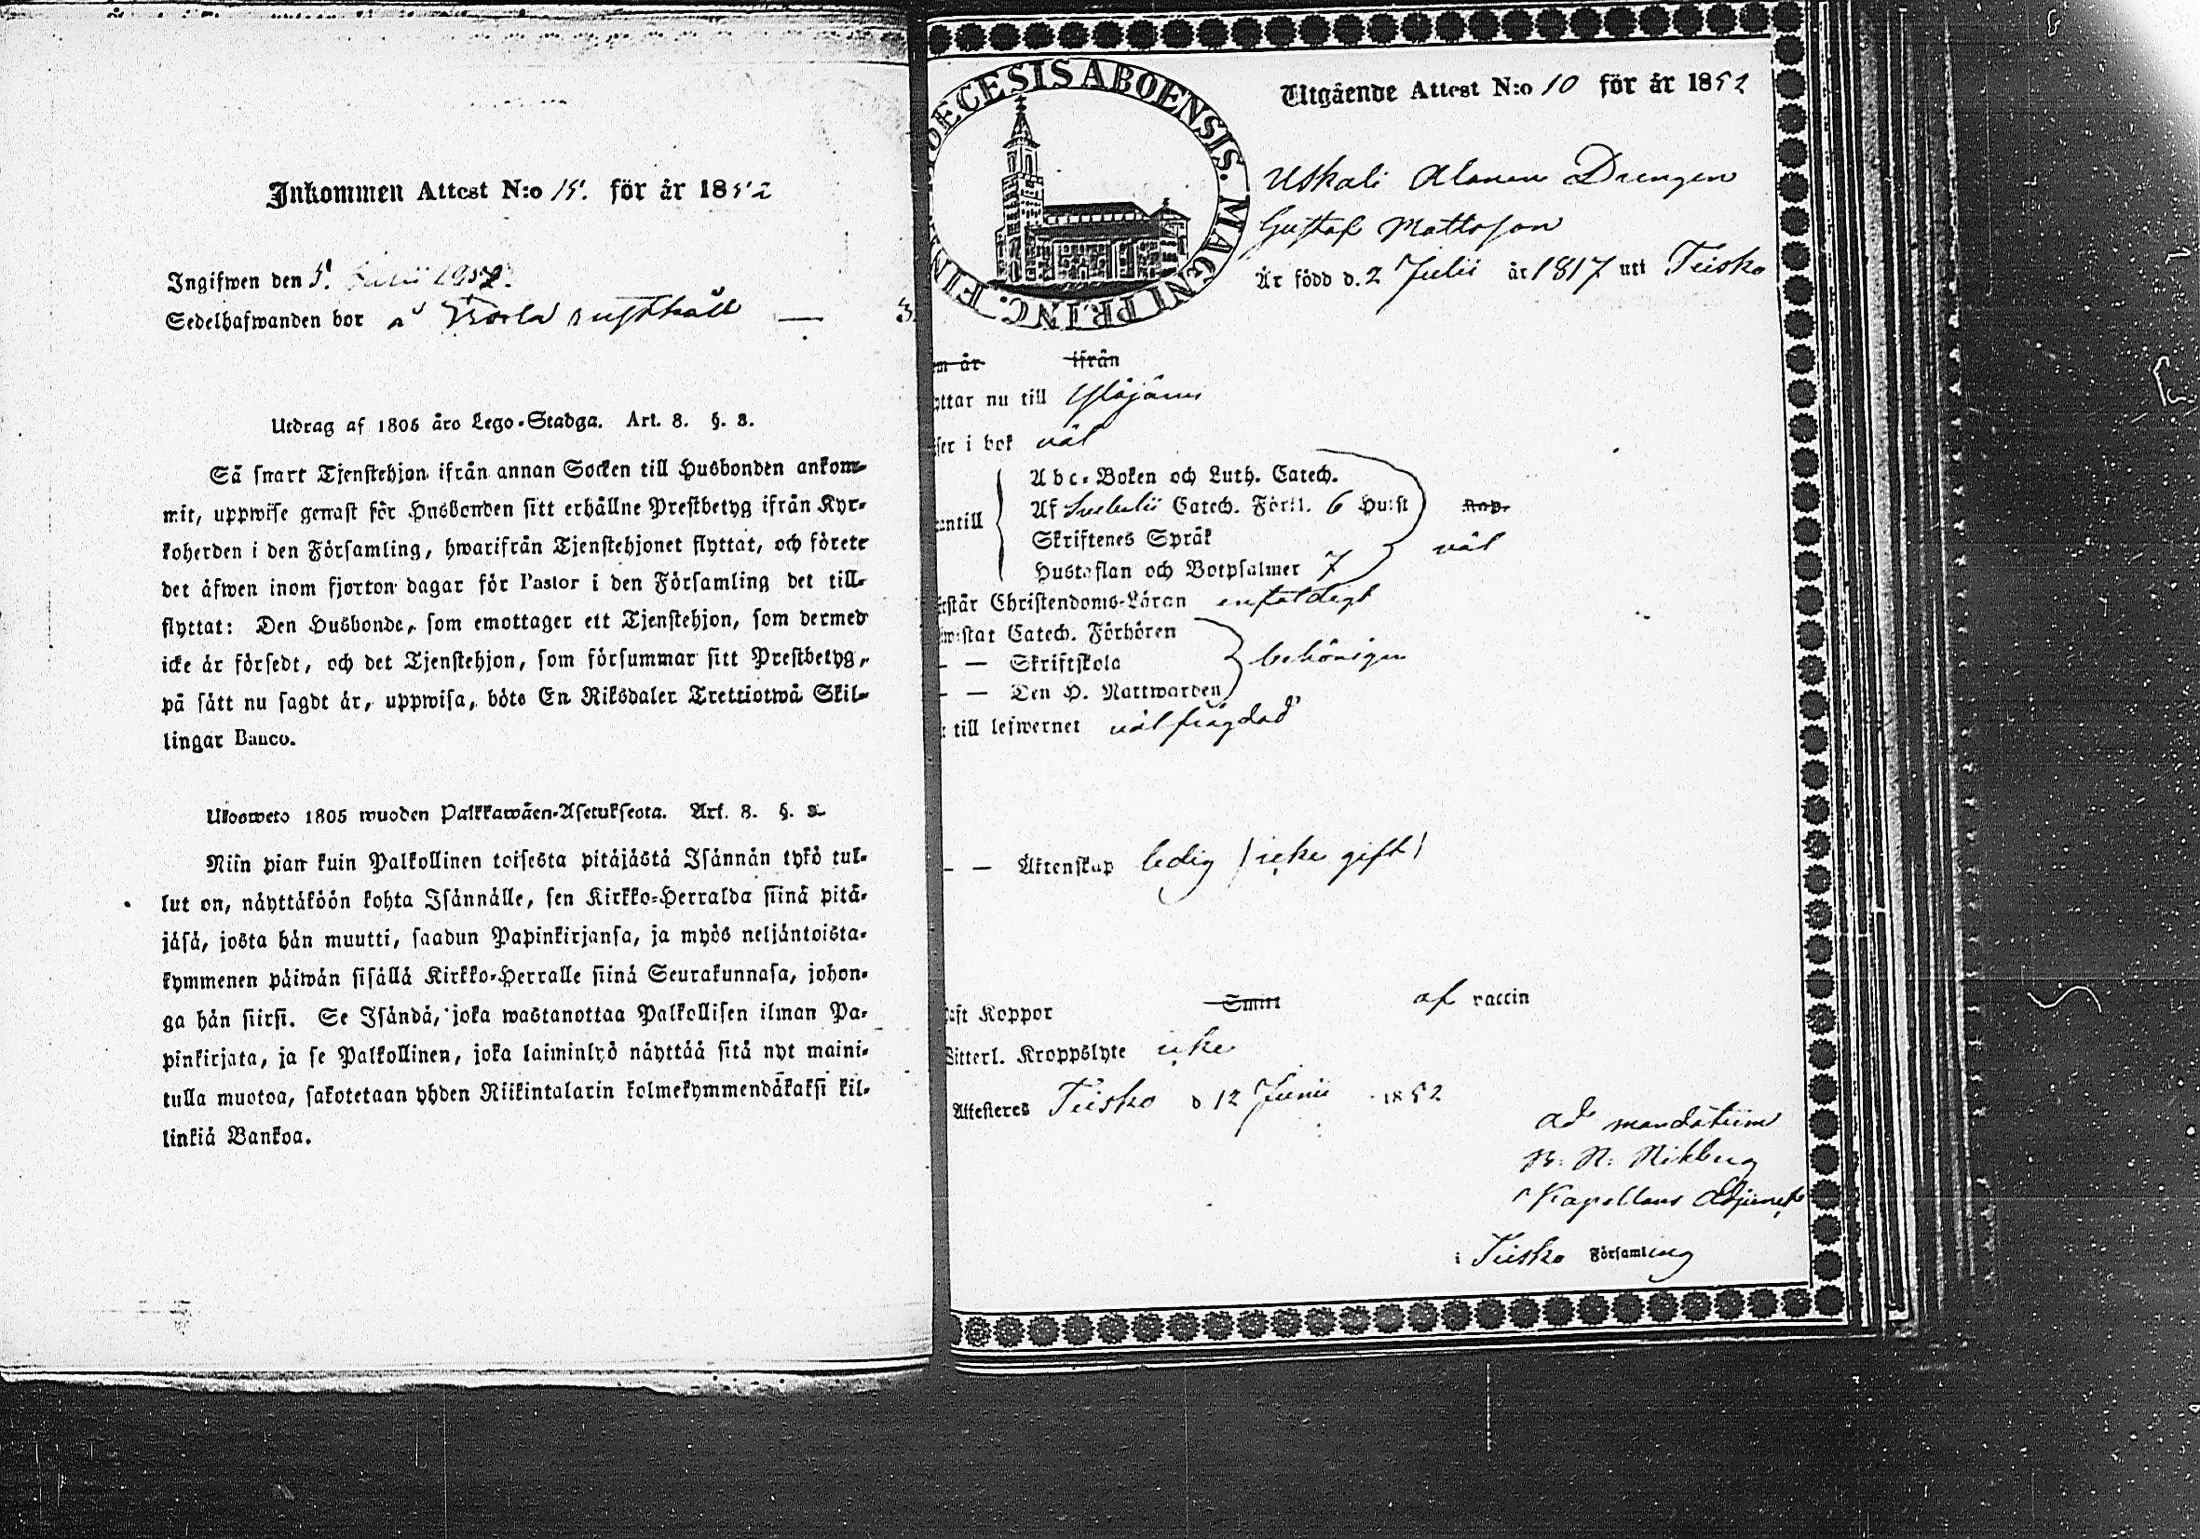 Inkommen Attest N:o 15. för år 1852
Ingifwen den 5.
Sedelhafwanden bor å
Utdrag af 1805 års Lego-Stadga. Art. 8. §. 3.
Så snart Tjenstehjon ifrån annan Socken till Husbonden ankom-
mit, uppwise genast för Husbonden sitt erhållne Prestbetyg ifrån Kyr-
koherden i den Församling, hwarifrån Tjenstehjonet flyttat, och förete
det äfwen inom fjorton dagar för Pastor i den Församling det till-
flyttat: Den Husbonde, som emottager ett Tjenstehjon, som dermed
icke är försedt, och det Tjenstehjon, som försummar sitt Prestbetyg,
på sätt nu sagdt är, uppwisa, böte En Riksdaler Trettiotwå Skil-
lingar Banco.
Ulosweto 1805 wuoden Palkkawäen-Asetuksesta. Art. 8. §. 3.
Niin pian kuin Palkollinen toisesta pitäjästä Isännän tykö tul-
lut on, näyttäköön kohta Isännälle, sen Kirkko-Herralda siinä pitä-
jäsä, josta hän muutti, saadun Papinkirjansa, ja myös neljäntoista-
kymmenen päiwän sisällä Kirkko-Herralle siinä Seurakunnasa, johon-
ga hän siirsi. Se Isändä, joka wastanottaa Palkollisen ilman Pa-
pinkirjata, ja se Palkollinen, joka laiminlyö näyttää sitä nyt maini-
tulla muotoa, sakotetaan yhden Riikintalarin kolmekymmendäkaksi kil-
linkiä Bankoa.
DIOECESIS ABOENSIS. MAGNI PRINC. FINL.
Utgående Attest N:o 10 för år 1852
Uskali Alanen Drengen
Gustaf Mattsson
Är född d. 2 Julii år 1817 uti Teisko
m år ifrån
ttar nu till Ylöjärvi
ser i bok väl
Abc-Boken och Luth. Catech.
Af Svebelii Catech. Förkl. 6 Hufst Rap.
antill
Skriftenes Språk väl
Hustaflan och Botpsalmer 7
rstår Christendoms-Läran enfaldigt
wistat Catech. Förhören
— — Skriftskola behörigen
— — Den H. Nattwarden
till lefwernet välfrägdad
— — Äktenskap ledig / icke gift /
aft Koppor Smitt af vaccin
Witterl. Kroppslyte icke
Attesteres Teisko d 12 Junii 1852
ad mandatum
Kapellans Adjunct
i Teisko Församling